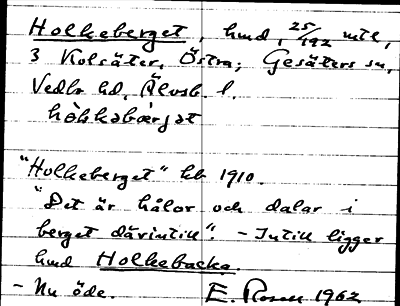 Holkeberget, hmd, 25/192 mtl,
3 Kolsäter, Östra; Gesäters sn,
Vedbo hd, Älvsb. l.
hòlkəbærjət
"Holkeberget" kb 1910.
"Det är hålor och dalar i
berget därintill". - Intill ligger
hmd Holkebacka.
- Nu öde. E. Rosen 1962